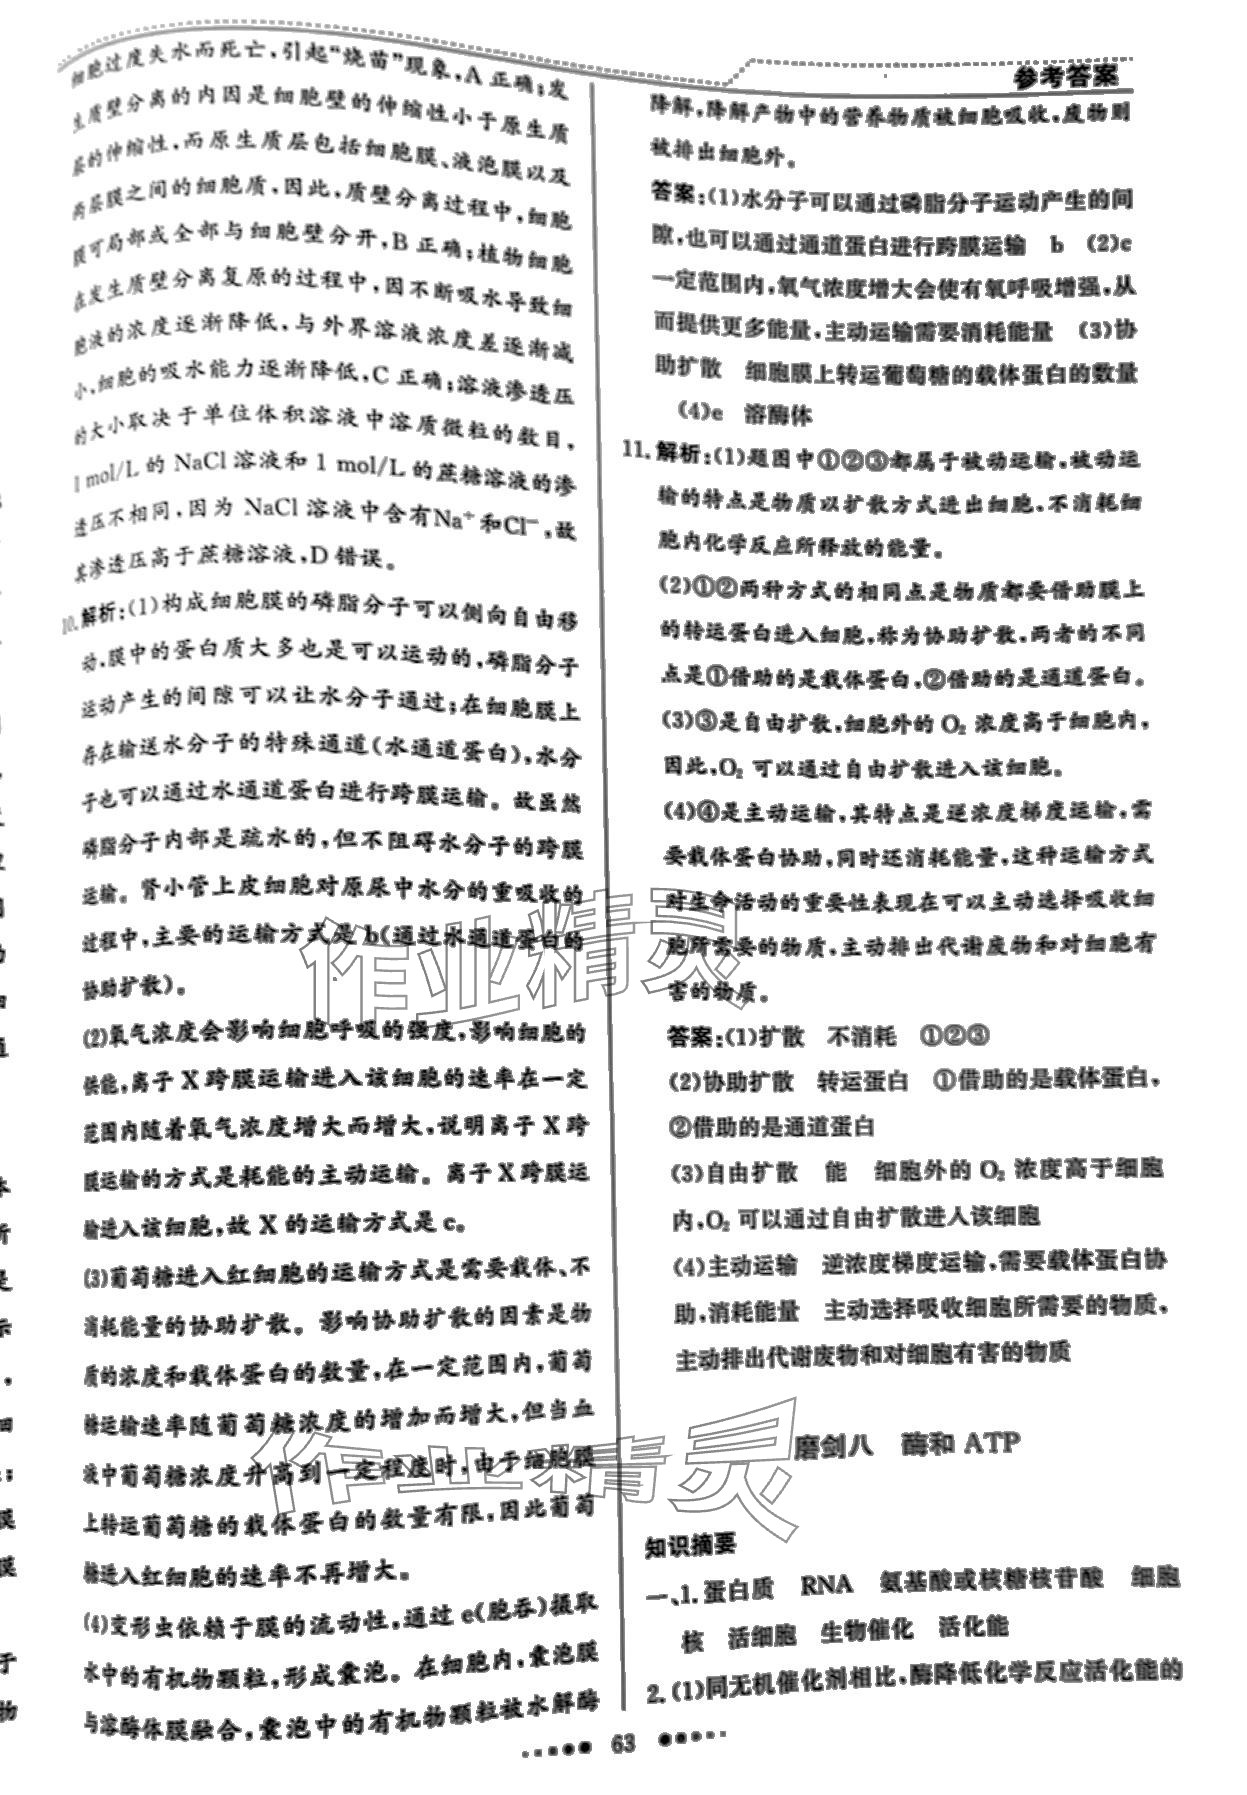 参考答案
细胞过度失水而死亡,引起“烧苗”现象,A 正确;发
生质壁分离的内因是细胞壁的伸缩性小于原生质
层的伸缩性,而原生质层包括细胞膜、液泡膜以及
两层膜之间的细胞质,因此,质壁分离过程中,细胞
膜可局部或全部与细胞壁分开,B 正确;植物细胞
在发生质壁分离复原的过程中,因不断吸水导致细
胞液的浓度逐渐降低,与外界溶液浓度差逐渐减
小,细胞的吸水能力逐渐降低,C 正确;溶液渗透压
的大小取决于单位体积溶液中溶质微粒的数目,
1 mol/L 的 NaCl 溶液和 1 mol/L 的蔗糖溶液的渗
透压不相同,因为 NaCl 溶液中含有Na⁺和Cl⁻,故
其渗透压高于蔗糖溶液,D 错误。
10.解析:(1)构成细胞膜的磷脂分子可以侧向自由移
动,膜中的蛋白质大多也是可以运动的,磷脂分子
运动产生的间隙可以让水分子通过;在细胞膜上
存在输送水分子的特殊通道(水通道蛋白),水分
子也可以通过水通道蛋白进行跨膜运输。故虽然
磷脂分子内部是疏水的,但不阻碍水分子的跨膜
运输。肾小管上皮细胞对原尿中水分的重吸收的
过程中,主要的运输方式是 b(通过水通道蛋白的
协助扩散)。
(2)氧气浓度会影响细胞呼吸的强度,影响细胞的
供能,离子 X 跨膜运输进入该细胞的速率在一定
范围内随着氧气浓度增大而增大,说明离子 X 跨
膜运输的方式是耗能的主动运输。离子 X 跨膜运
输进入该细胞,故 X 的运输方式是 c。
(3)葡萄糖进入红细胞的运输方式是需要载体、不
消耗能量的协助扩散。影响协助扩散的因素是物
质的浓度和载体蛋白的数量,在一定范围内,葡萄
糖运输速率随葡萄糖浓度的增加而增大,但当血
液中葡萄糖浓度升高到一定程度时,由于细胞膜
上转运葡萄糖的载体蛋白的数量有限,因此葡萄
糖进入红细胞的速率不再增大。
(4)变形虫依赖于膜的流动性,通过 e(胞吞)摄取
水中的有机物颗粒,形成囊泡。在细胞内,囊泡膜
与溶酶体膜融合,囊泡中的有机物颗粒被水解酶
降解,降解产物中的营养物质被细胞吸收,废物则
被排出细胞外。
答案:(1)水分子可以通过磷脂分子运动产生的间
隙,也可以通过通道蛋白进行跨膜运输 b (2)c
一定范围内,氧气浓度增大会使有氧呼吸增强,从
而提供更多能量,主动运输需要消耗能量 (3)协
助扩散 细胞膜上转运葡萄糖的载体蛋白的数量
(4)e 溶酶体
11.解析:(1)题图中①②③都属于被动运输,被动运
输的特点是物质以扩散方式进出细胞,不消耗细
胞内化学反应所释放的能量。
(2)①②两种方式的相同点是物质都要借助膜上
的转运蛋白进入细胞,称为协助扩散,两者的不同
点是①借助的是载体蛋白,②借助的是通道蛋白。
(3)③是自由扩散,细胞外的 O₂ 浓度高于细胞内,
因此,O₂ 可以通过自由扩散进入该细胞。
(4)④是主动运输,其特点是逆浓度梯度运输,需
要载体蛋白协助,同时还消耗能量,这种运输方式
对生命活动的重要性表现在可以主动选择吸收细
胞所需要的物质,主动排出代谢废物和对细胞有
害的物质。
答案:(1)扩散 不消耗 ①②③
(2)协助扩散 转运蛋白 ①借助的是载体蛋白,
②借助的是通道蛋白
(3)自由扩散 能 细胞外的 O₂ 浓度高于细胞
内,O₂ 可以通过自由扩散进人该细胞
(4)主动运输 逆浓度梯度运输,需要载体蛋白协
助,消耗能量 主动选择吸收细胞所需要的物质,
主动排出代谢废物和对细胞有害的物质
磨剑八 酶和 ATP
知识摘要
一、1.蛋白质 RNA 氨基酸或核糖核苷酸 细胞
核 活细胞 生物催化 活化能
2.(1)同无机催化剂相比,酶降低化学反应活化能的
63
作业精灵
作业精灵